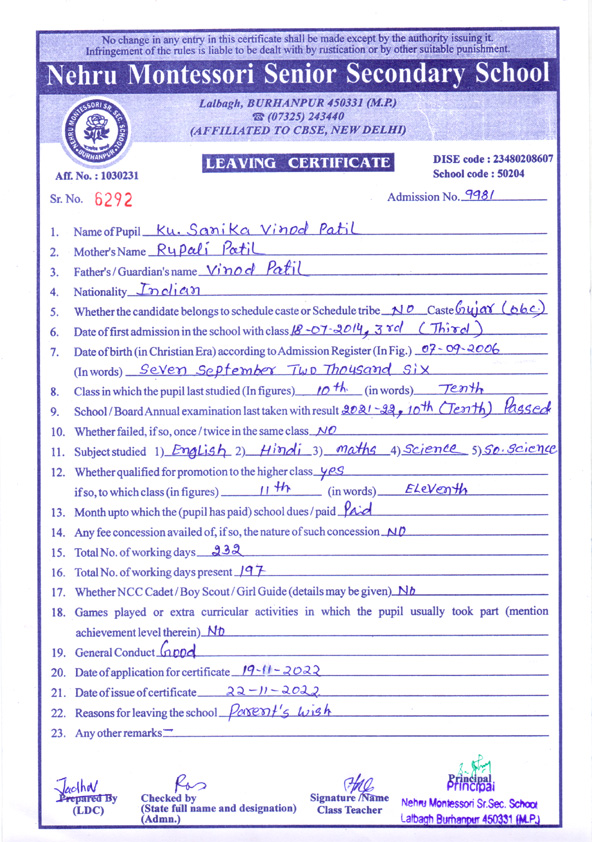 No change in any entry in this certificate shall be made except by the authority issuing it.
Infringement of the rules is liable to be dealt with by rustication or by other suitable punishment.
Nehru Montessori Senior Secondary School
Lalbagh, BURHANPUR 450331 (M.P.)
☎ (07325) 243440
(AFFILIATED TO CBSE, NEW DELHI)
NEHRU MONTESSORI SR. SEC. SCHOOL
BURHANPUR
LEAVING CERTIFICATE
DISE code : 23480208607
Aff. No. : 1030231
School code : 50204
Sr. No. 6292
Admission No. 9981
1. Name of Pupil Ku. Sanika Vinod Patil
2. Mother's Name Rupali Patil
3. Father's / Guardian's name Vinod Patil
4. Nationality Indian
5. Whether the candidate belongs to schedule caste or Schedule tribe NO Caste Gujar (obc)
6. Date of first admission in the school with class 18-07-2014, 3rd (Third)
7. Date of birth (in Christian Era) according to Admission Register (In Fig.) 07-09-2006
(In words) Seven September Two Thousand Six
8. Class in which the pupil last studied (In figures) 10th (in words) Tenth
9. School / Board Annual examination last taken with result 2021-22, 10th (Tenth) Passed
10. Whether failed, if so, once / twice in the same class NO
11. Subject studied 1) English 2) Hindi 3) maths 4) Science 5) So. Science
12. Whether qualified for promotion to the higher class yes
if so, to which class (in figures) 11th (in words) Eleventh
13. Month upto which the (pupil has paid) school dues / paid Paid
14. Any fee concession availed of, if so, the nature of such concession NO
15. Total No. of working days 232
16. Total No. of working days present 197
17. Whether NCC Cadet / Boy Scout / Girl Guide (details may be given) No
18. Games played or extra curricular activities in which the pupil usually took part (mention
achievement level therein) No
19. General Conduct Good
20. Date of application for certificate 19-11-2022
21. Date of issue of certificate 22-11-2022
22. Reasons for leaving the school Parent's wish
23. Any other remarks —
Jadhav
Prepared By
(LDC)
Checked by
(State full name and designation)
(Admn.)
Signature /Name
Class Teacher
Principal
Principal
Nehru Montessori Sr.Sec. School
Lalbagh Burhanpur 450331 (M.P.)